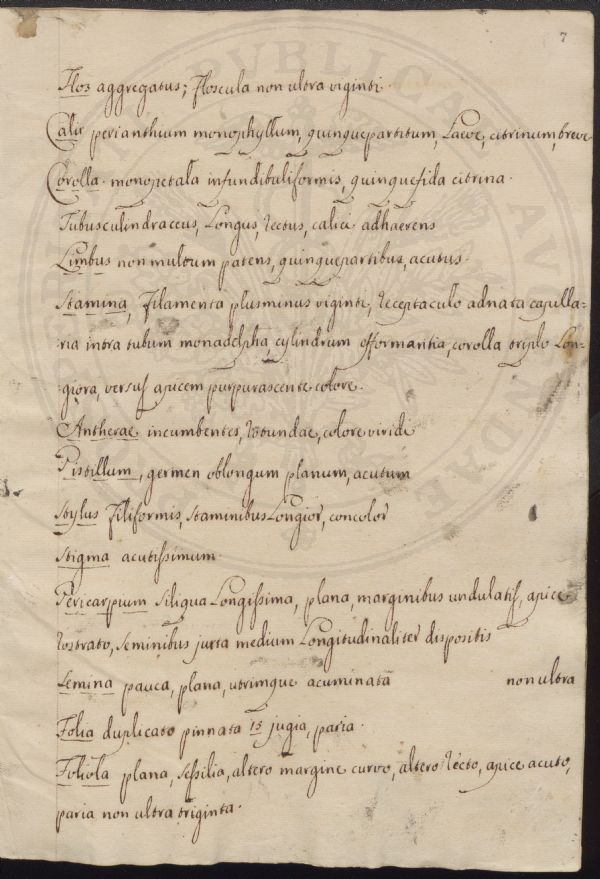 7
Flos aggregatus; floscula non ultra viginti
Calix perianthium monophyllum, quinquepartitum, Laeve, citrinum, breve
Corolla. monopetala infundibuliformis, quinquefida citrina.
Tubusculindraceus, Longus, rectus, calici adhaerens
Limbus non multum patens, quinquepartibus, acutus.
Stamina, filamenta plusminus viginti, receptaculo adnata capilla=
ria intra tubum monadelpha, cylindrum efformantia, corolla triplo Lon=
giora, versus apicem purpurascente colore.
Antherae incumbentes, rotundae, colore viridi
Pistillum, germen oblongum planum, acutum
Stylus filiformis, staminibus Longior, concolor
Stigma acutissimum.
Pericarpium siliqua Longissima, plana, marginibus undulatis, apice
rostrato, seminibus juxta medium Longitudinaliter dispositis
Semina pauca, plana, utrimque acuminata non ultra
Folia duplicato pinnata 15 jugia, paria.
Foliola plana, sessilia, altero margine curvo, altero recto, apice acuto,
paria non ultra triginta.
PUBLICA